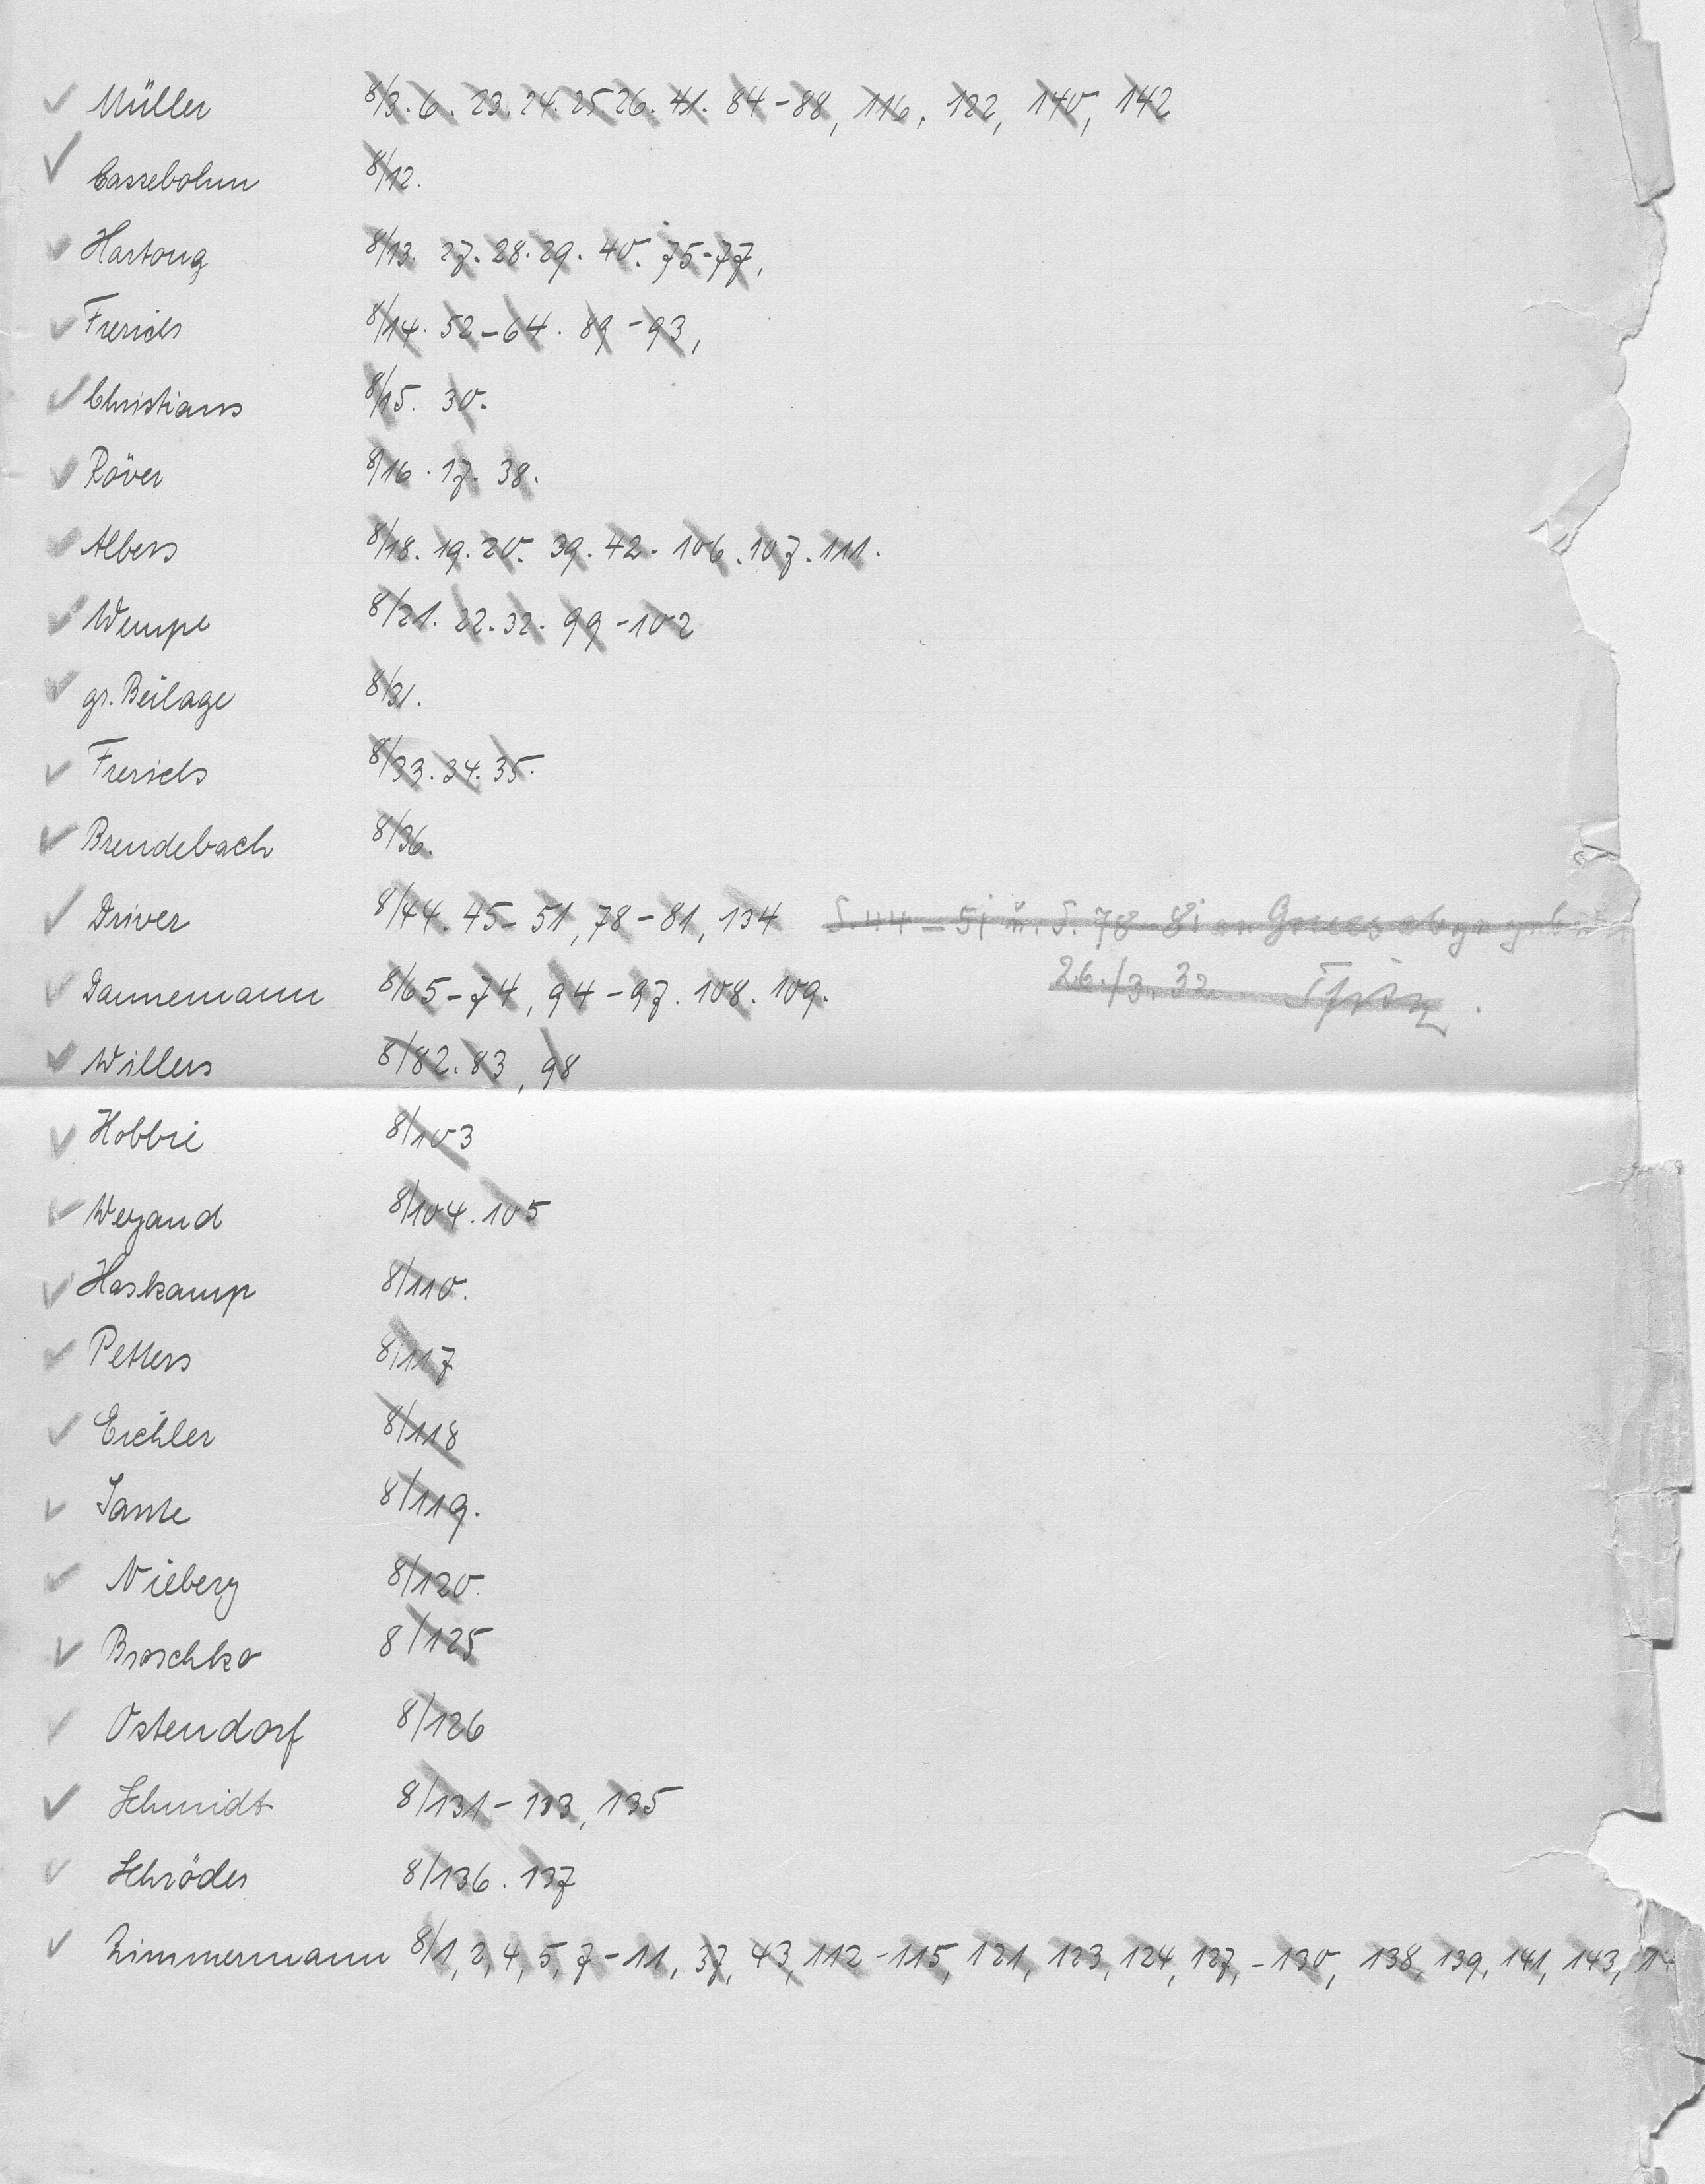 Müller 8/3. 6. 23. 24. 25. 26. 41. 84-88, 116, 122, 140, 142
Cassebohm 8/12.
Hartong 8/13. 27. 28. 29. 40. 75-77,
Frerichs 8/14. 52-64. 89-93,
Christians 8/15. 30.
Röver 8/16. 17. 38.
Albers 8/18. 19. 20. 39. 42. 106. 107. 111.
Wempe 8/21. 22. 32. 99-102
gr. Beilage 8/31.
Frerichs 8/33. 34. 35.
Brendebach 8/36.
Driver 8/44. 45-51, 78-81, 134 S. 44-51 u. S. 78-81 an
Dannemann 8/65-74, 94-97. 108. 109. 26./3. 32
Willers 8/82. 83, 98
Hobbie 8/103
Weyand 8/104. 105
Haskamp 8/110.
Petters 8/117
Eichler 8/118
Sante 8/119.
Nieberg 8/120.
Broschko 8/125
Ostendorf 8/126
Schmidt 8/131-133, 135
Schröder 8/136. 137
Zimmermann 8/1, 2, 4, 5, 7-11, 37, 43, 112-115, 121, 123, 124, 127,-130, 138, 139, 141, 143,